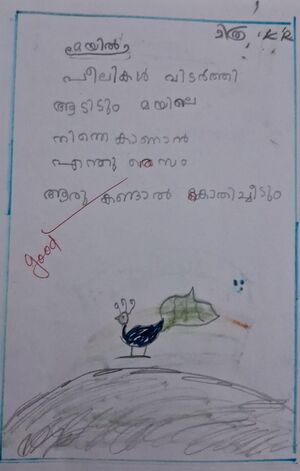 ചിത്ര. K R
മയിൽ
പീലികൾ വിടർത്തി
ആടിടും മയിലെ
നിന്നെ കാണാൻ
എന്തു രസം
ആരു കണ്ടാൽ കൊതിച്ചീടും
good